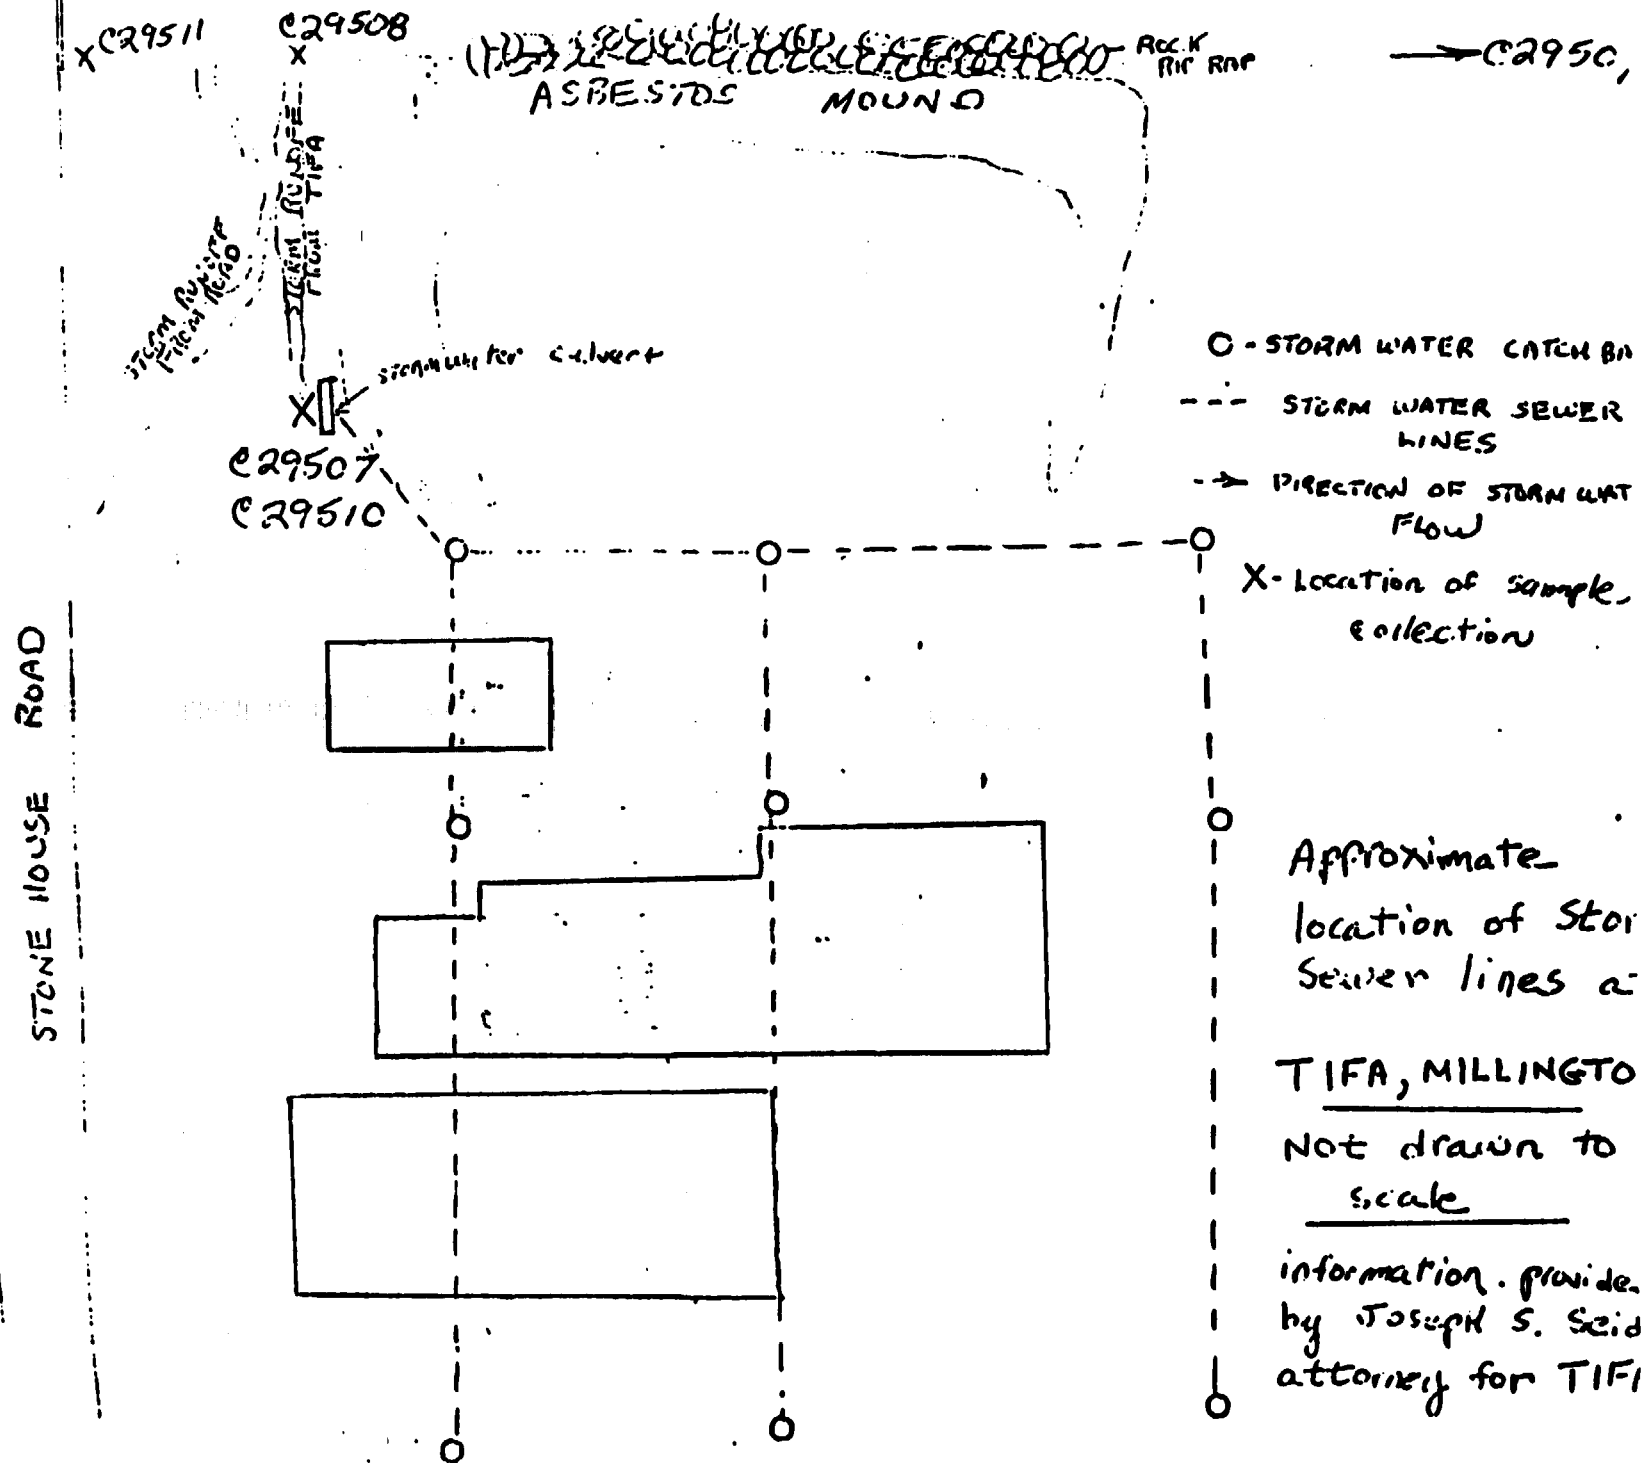 X C29511
C29508
X
ROCK
RIP RAP
C2950,
ASBESTOS MOUND
STORM RUNOFF
FROM TIFA
STORM RUNOFF
FROM ROAD
stormwater culvert
X
C29507
C29510
O - STORM WATER CATCH BA
--- STORM WATER SEWER
LINES
--> DIRECTION OF STORM WAT
FLOW
X - Location of sample
collection
STONE HOUSE ROAD
Approximate
location of Stor
Sewer lines a
TIFA, MILLINGTO
Not drawn to
scale
information provide
by Joseph S. Seid
attorney for TIF